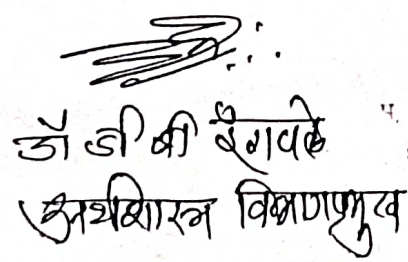 डॉ डी बी रैगवले
अर्थशास्त्र विभागप्रमुख